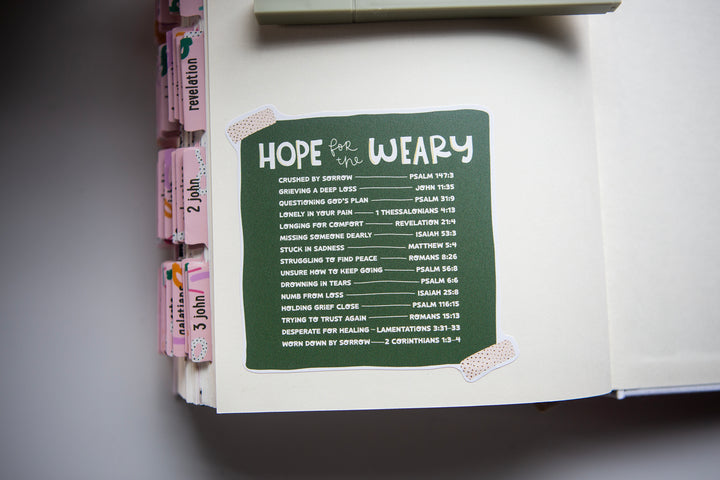 HOPE for the WEARY
CRUSHED BY SORROW — PSALM 147:3
GRIEVING A DEEP LOSS — JOHN 11:35
QUESTIONING GOD'S PLAN — PSALM 31:9
LONELY IN YOUR PAIN — 1 THESSALONIANS 4:13
LONGING FOR COMFORT — REVELATION 21:4
MISSING SOMEONE DEARLY — ISAIAH 53:3
STUCK IN SADNESS — MATTHEW 5:4
STRUGGLING TO FIND PEACE — ROMANS 8:26
UNSURE HOW TO KEEP GOING — PSALM 56:8
DROWNING IN TEARS — PSALM 6:6
NUMB FROM LOSS — ISAIAH 25:8
HOLDING GRIEF CLOSE — PSALM 116:15
TRYING TO TRUST AGAIN — ROMANS 15:13
DESPERATE FOR HEALING — LAMENTATIONS 3:31-33
WORN DOWN BY SORROW — 2 CORINTHIANS 1:3-4
revelation
2 john
3 john